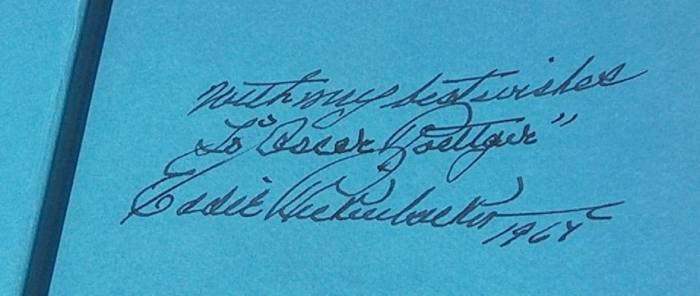 With my best wishes
To "Oscar Roettger"
Eddie Rickenbacker
1967